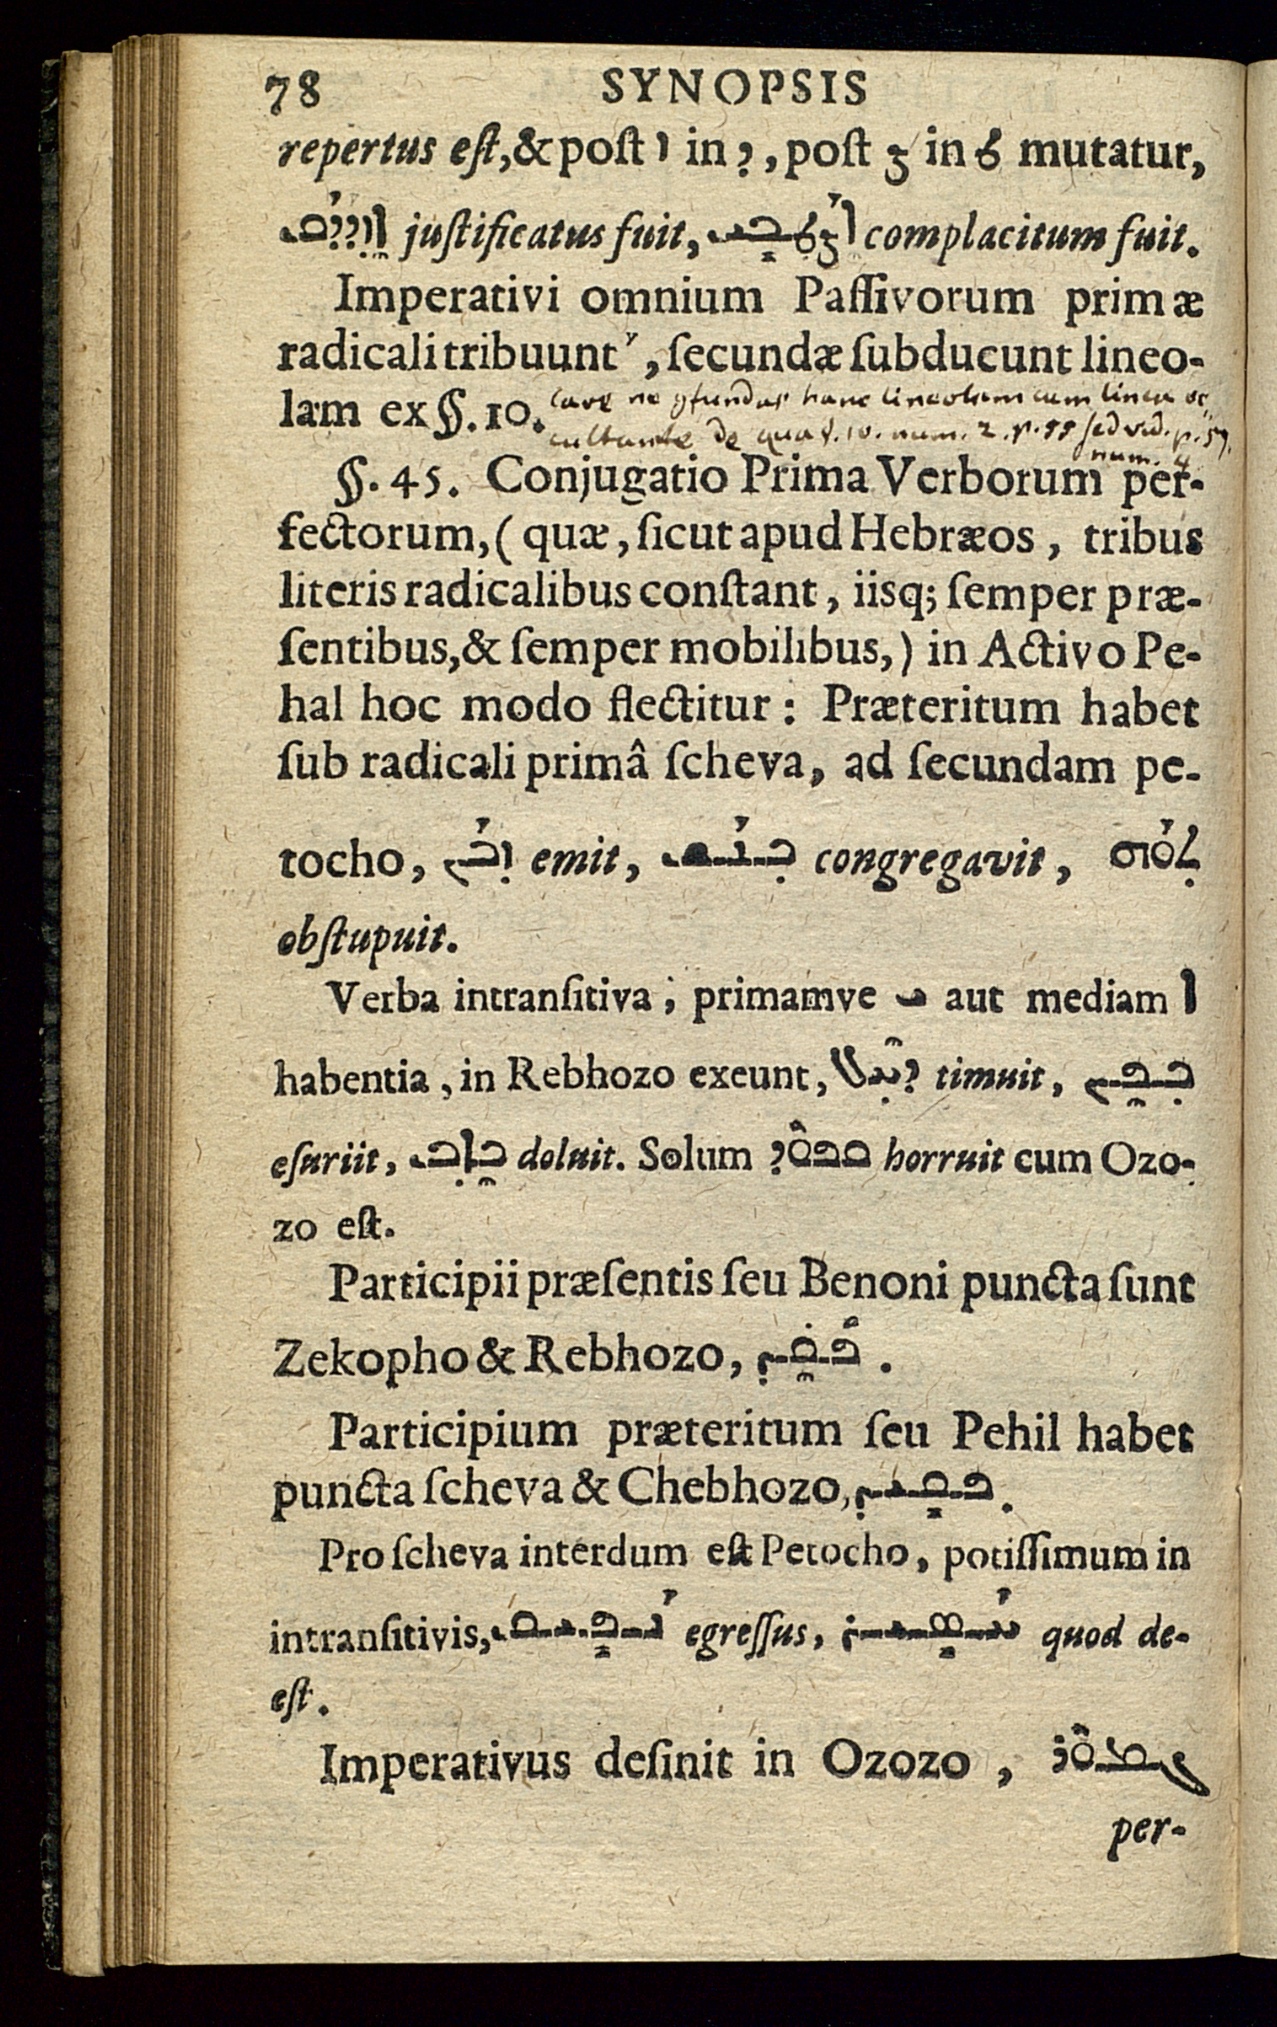 78 SYNOPSIS
repertus eſt, & poſt ܙ in ܕ, poſt ܨ in ܛ mutatur,
ܐܙܕܕܩ juſtificatus fuit, ܐܨܛܒܝ complacitum fuit.
Imperativi omnium Paſſivorum primæ
radicali tribuunt, ſecundæ ſubducunt lineo-
lam ex §. 10. cave ne confundas hanc lineolam cum linea oc
cultante de qua §. 10. num. 2. p. 55 ſed vid. p. 57.
num. 4
§. 45. Conjugatio Prima Verborum per-
fectorum, (quæ, ſicut apud Hebræos, tribus
literis radicalibus conſtant, iisq; ſemper præ-
ſentibus, & ſemper mobilibus,) in Activo Pe-
hal hoc modo flectitur: Præteritum habet
ſub radicali primâ ſcheva, ad ſecundam pe-
tocho, ܙܒܢ emit, ܟܢܫ congregavit, ܬܘܗ
obſtupuit.
Verba intranſitiva; primamve ܝ aut mediam ܐ
habentia, in Rebhozo exeunt, ܕܚܠ timuit, ܟܦܢ
eſuriit, ܟܐܒ doluit. Solum ܩܦܘܕ horruit cum Ozo-
zo eſt.
Participii præſentis ſeu Benoni puncta ſunt
Zekopho & Rebhozo, ܦܩܕ.
Participium præteritum ſeu Pehil habet
puncta ſcheva & Chebhozo, ܦܩܝܕ.
Pro ſcheva interdum eſt Petocho, potiſſimum in
intranſitivis, ܢܦܝܩ egreſſus, ܚܣܝܪ quod de-
eſt.
Imperativus deſinit in Ozozo,
per-